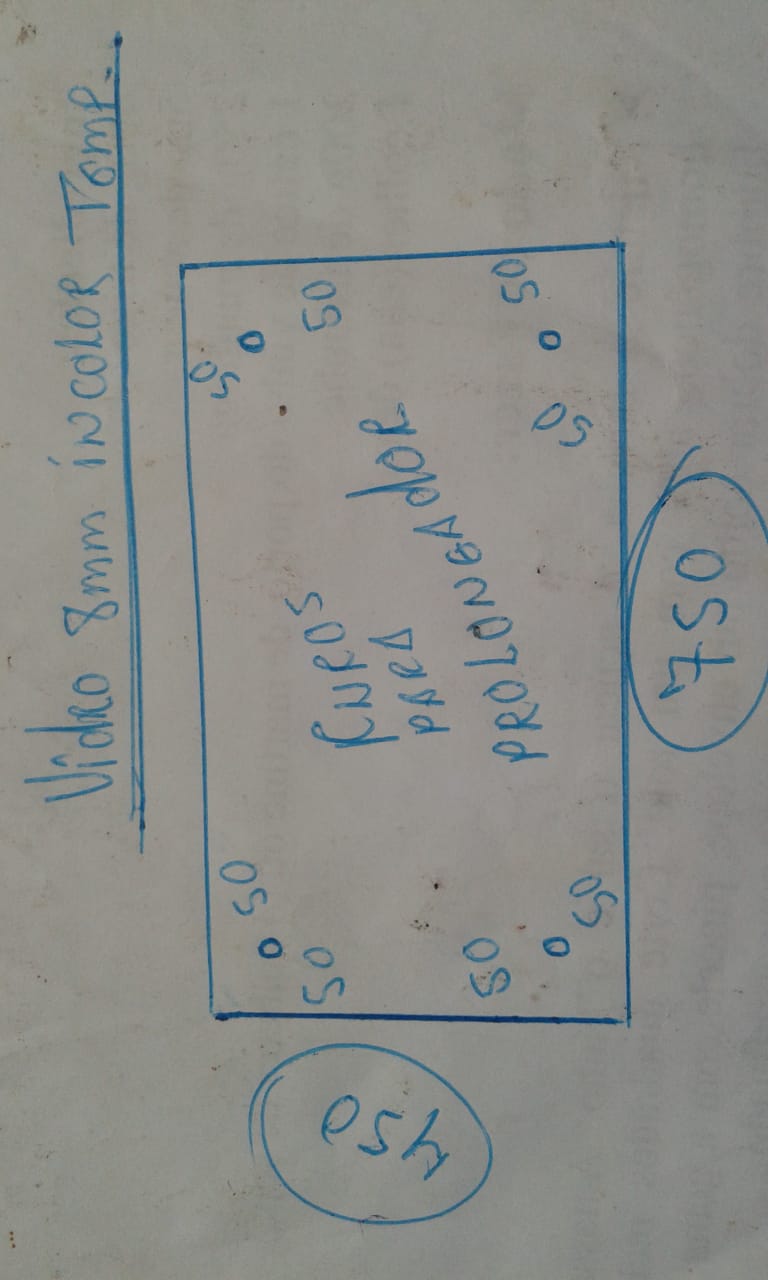 Vidro 8mm incolor Temp.
50
50
50
50
FUROS
PARA
PROLONGADOR
50
50
50
50
450
750